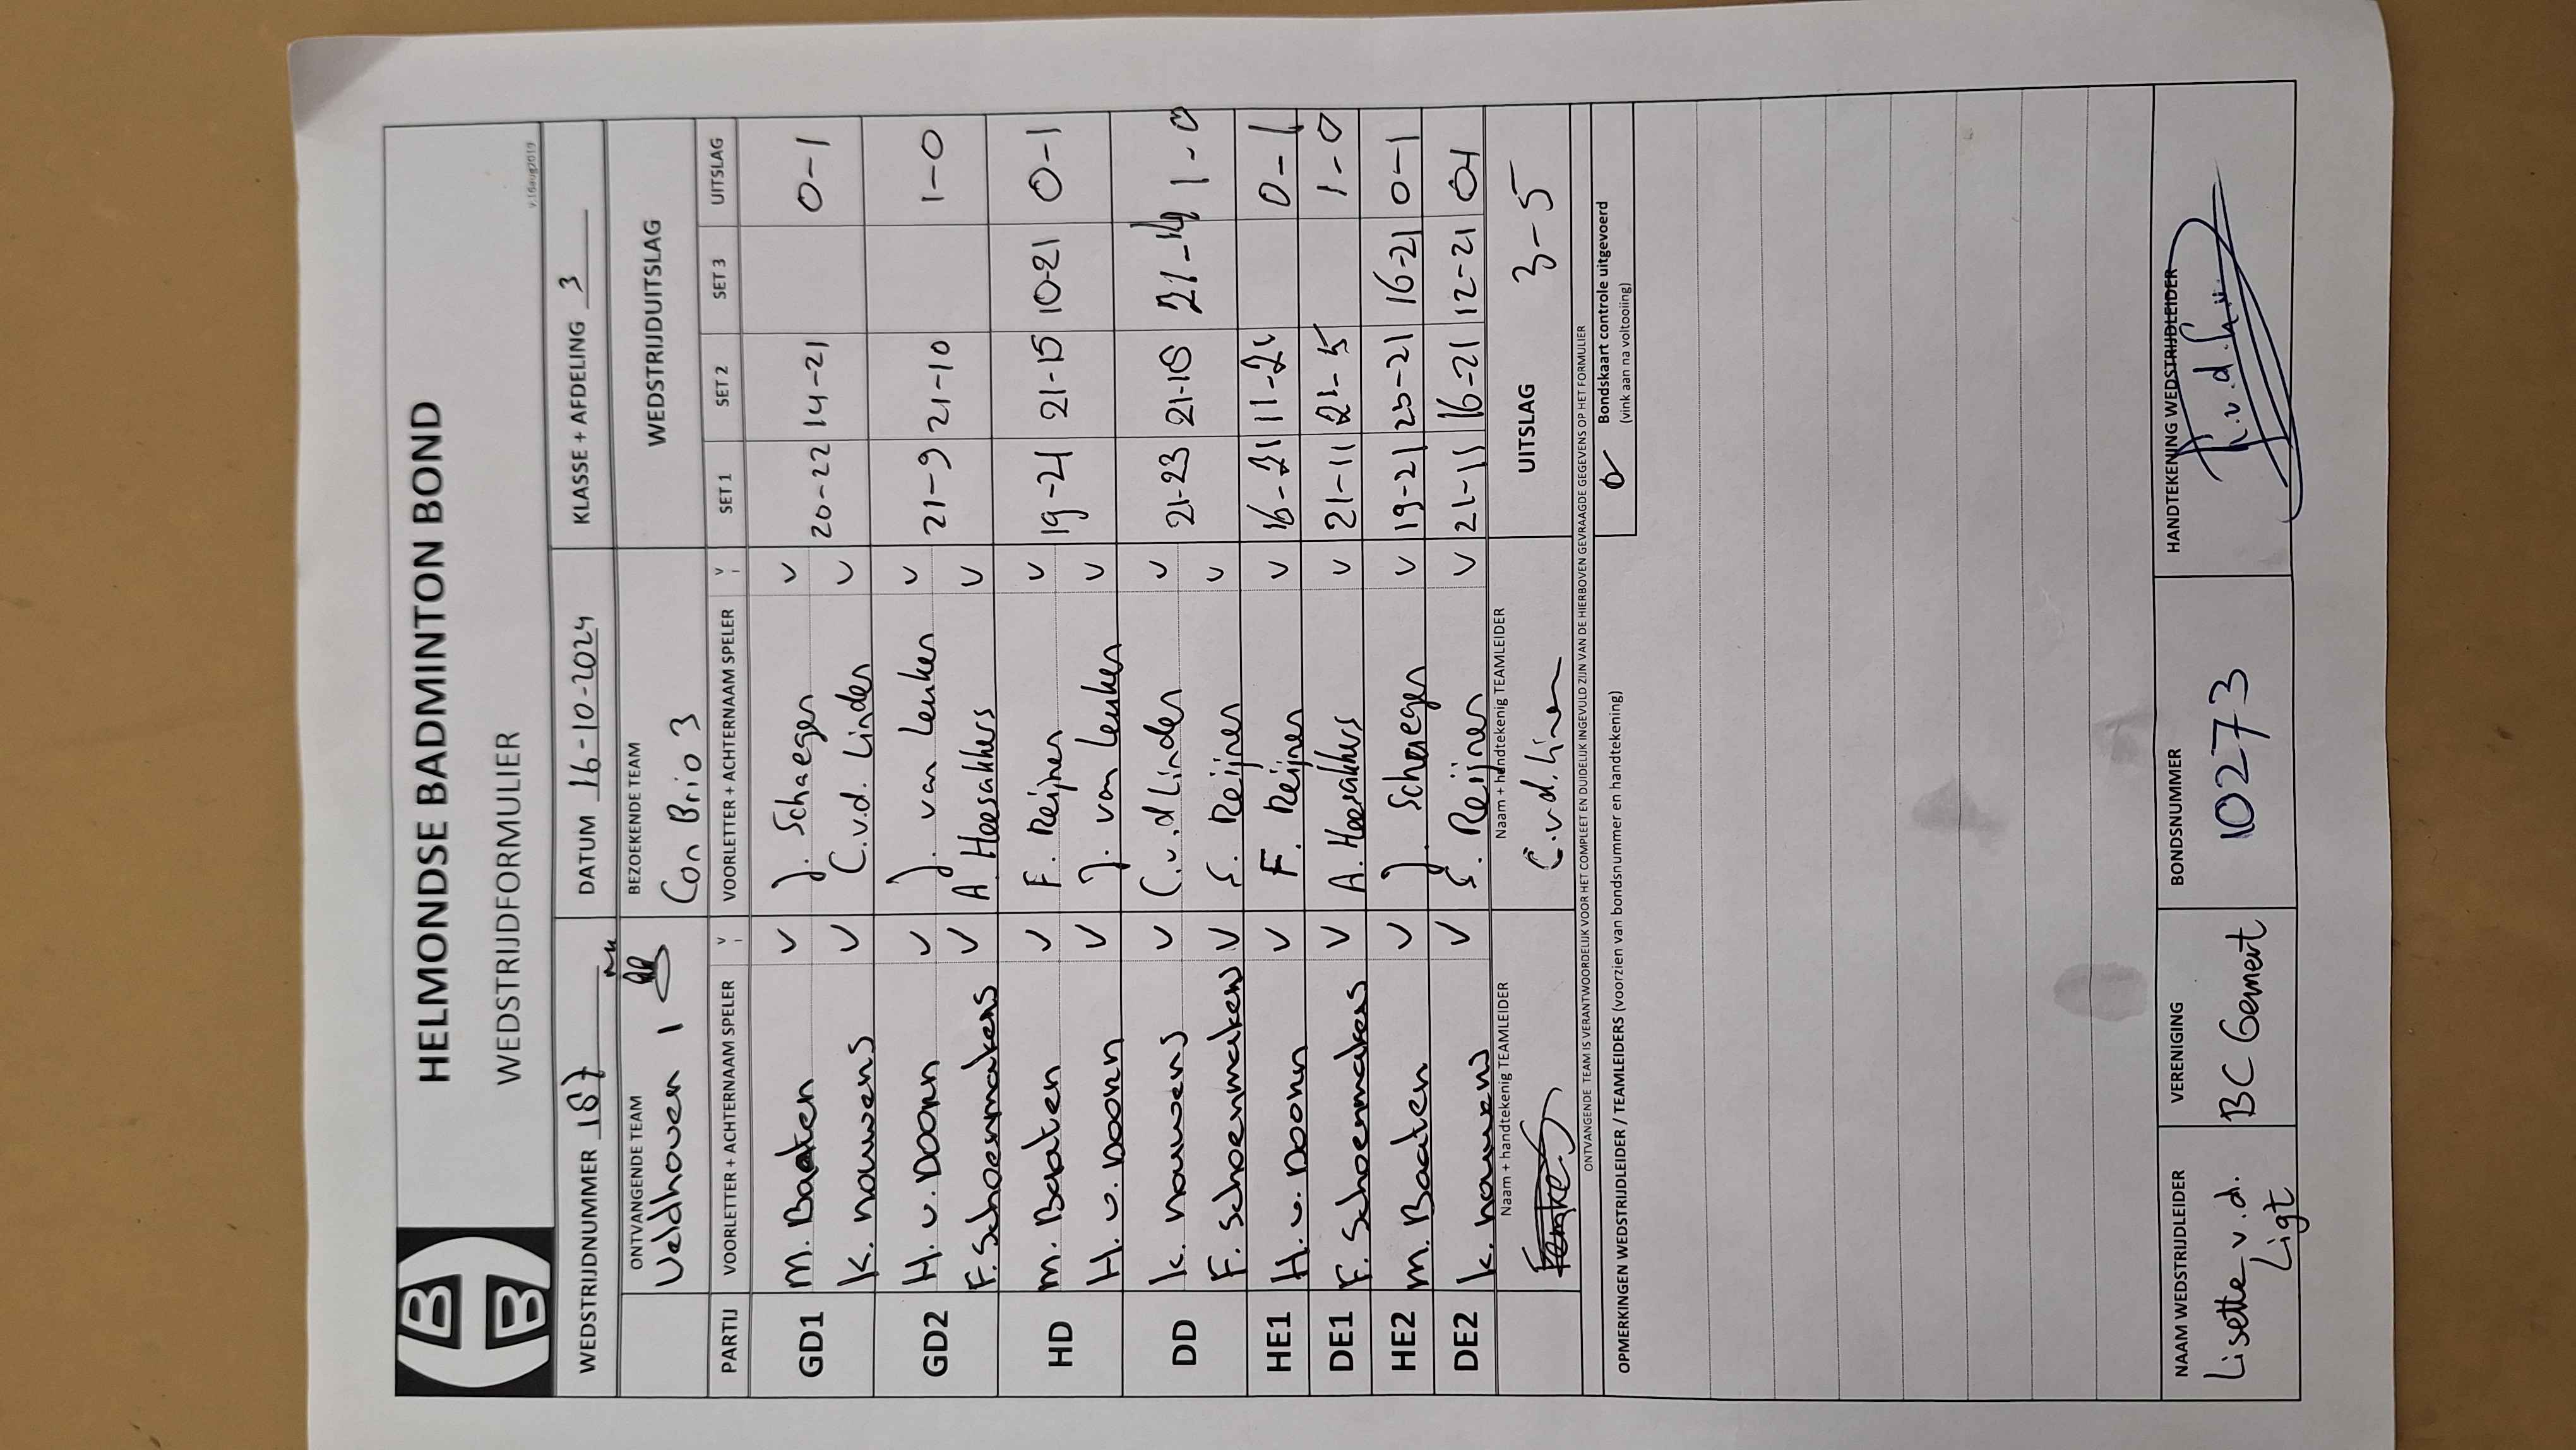 HELMONDSE BADMINTON BOND
WEDSTRIJDFORMULIER
v.16aug2019
WEDSTRIJDNUMMER 187 DATUM 16-10-2024 KLASSE + AFDELING 3
ONTVANGENDE TEAM BEZOEKENDE TEAM WEDSTRIJDUITSLAG
Veldhoven 1 Con Brio 3
PARTIJ VOORLETTER + ACHTERNAAM SPELER V VOORLETTER + ACHTERNAAM SPELER V SET 1 SET 2 SET 3 UITSLAG
GD1 M. Baaten V J. Schaeger V 20-22 14-21 0-1
K. Nouwens V C.v.d. Linden V
GD2 H. v. Doorn V J. van Leuken V 21-9 21-10 1-0
F. Schoenmakers V A. Heesakkers V
HD M. Baaten V F. Reijnen V 19-21 21-15 10-21 0-1
H. v. Doorn V J. van Leuken V
DD K. Nouwens V C.v.d Linden V 21-23 21-18 21- 1-0
F. Schoenmakers V S. Reijnen V
HE1 H. v. Doorn V F. Reijnen V 16-21 11-21 0-1
DE1 F. Schoenmakers V A. Heesakkers V 21-11 21-5 1-0
HE2 M. Baaten V J. Schaeger V 19-21 23-21 16-21 0-1
DE2 K. Nouwens V S. Reijnen V 21-11 16-21 12-21 0-1
Naam + handtekenig TEAMLEIDER Naam + handtekenig TEAMLEIDER UITSLAG 3-5
C.v.d.Linden
ONTVANGENDE TEAM IS VERANTWOORDELIJK VOOR HET COMPLEET EN DUIDELIJK INGEVULD ZIJN VAN DE HIERBOVEN GEVRAAGDE GEGEVENS OP HET FORMULIER
Bondskaart controle uitgevoerd
(vink aan na voltooiing)
OPMERKINGEN WEDSTRIJDLEIDER / TEAMLEIDERS (voorzien van bondsnummer en handtekening)
NAAM WEDSTRIJDLEIDER VERENIGING BONDSNUMMER HANDTEKENING WEDSTRIJDLEIDER
Lisette v.d. BC Gemert 10273
Ligt